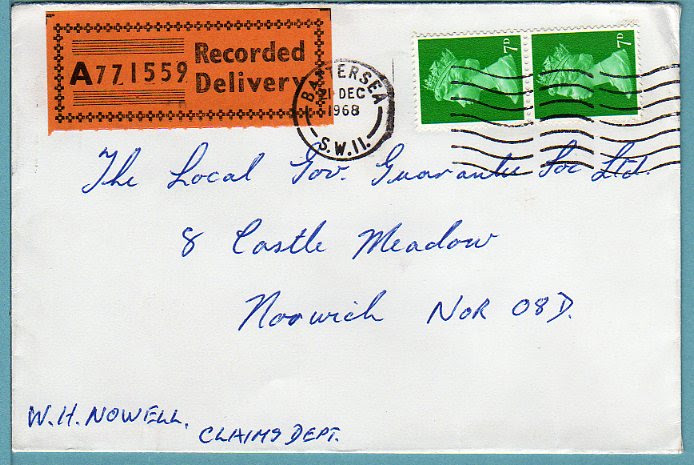 Recorded
Delivery
A771559
BATTERSEA
21 DEC
1968
S.W.11.
7D
7D
The Local Gov. Guarantee Soc Ltd.
8 Castle Meadow
Norwich NOR 08D.
W.H. NOWELL.
CLAIMS DEPT.